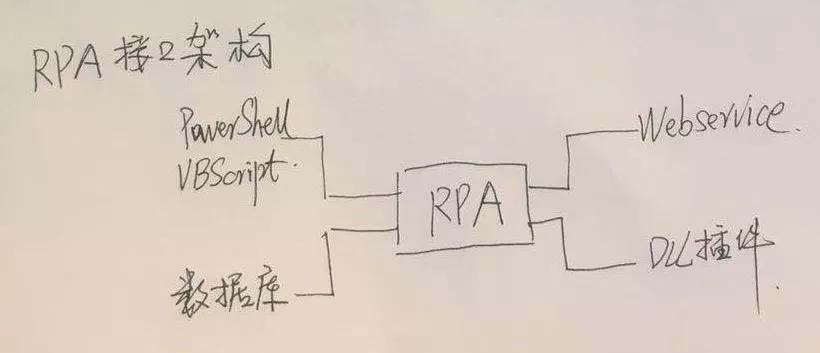 RPA 接口架构
PowerShell
VBScript.
数据库
RPA
Webservice.
DLL 插件.